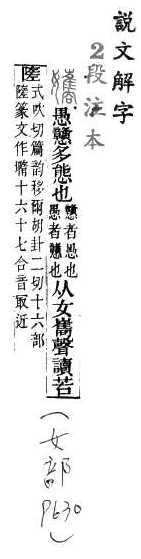 說文解字
2 段注本
愚戇多態也
戇者愚也
愚者戇也
从女巂聲讀若
陸
式吹切篇韵移爾胡卦二切十六部
陸篆文作㙐十六十七合音冣近
(女部
P630)